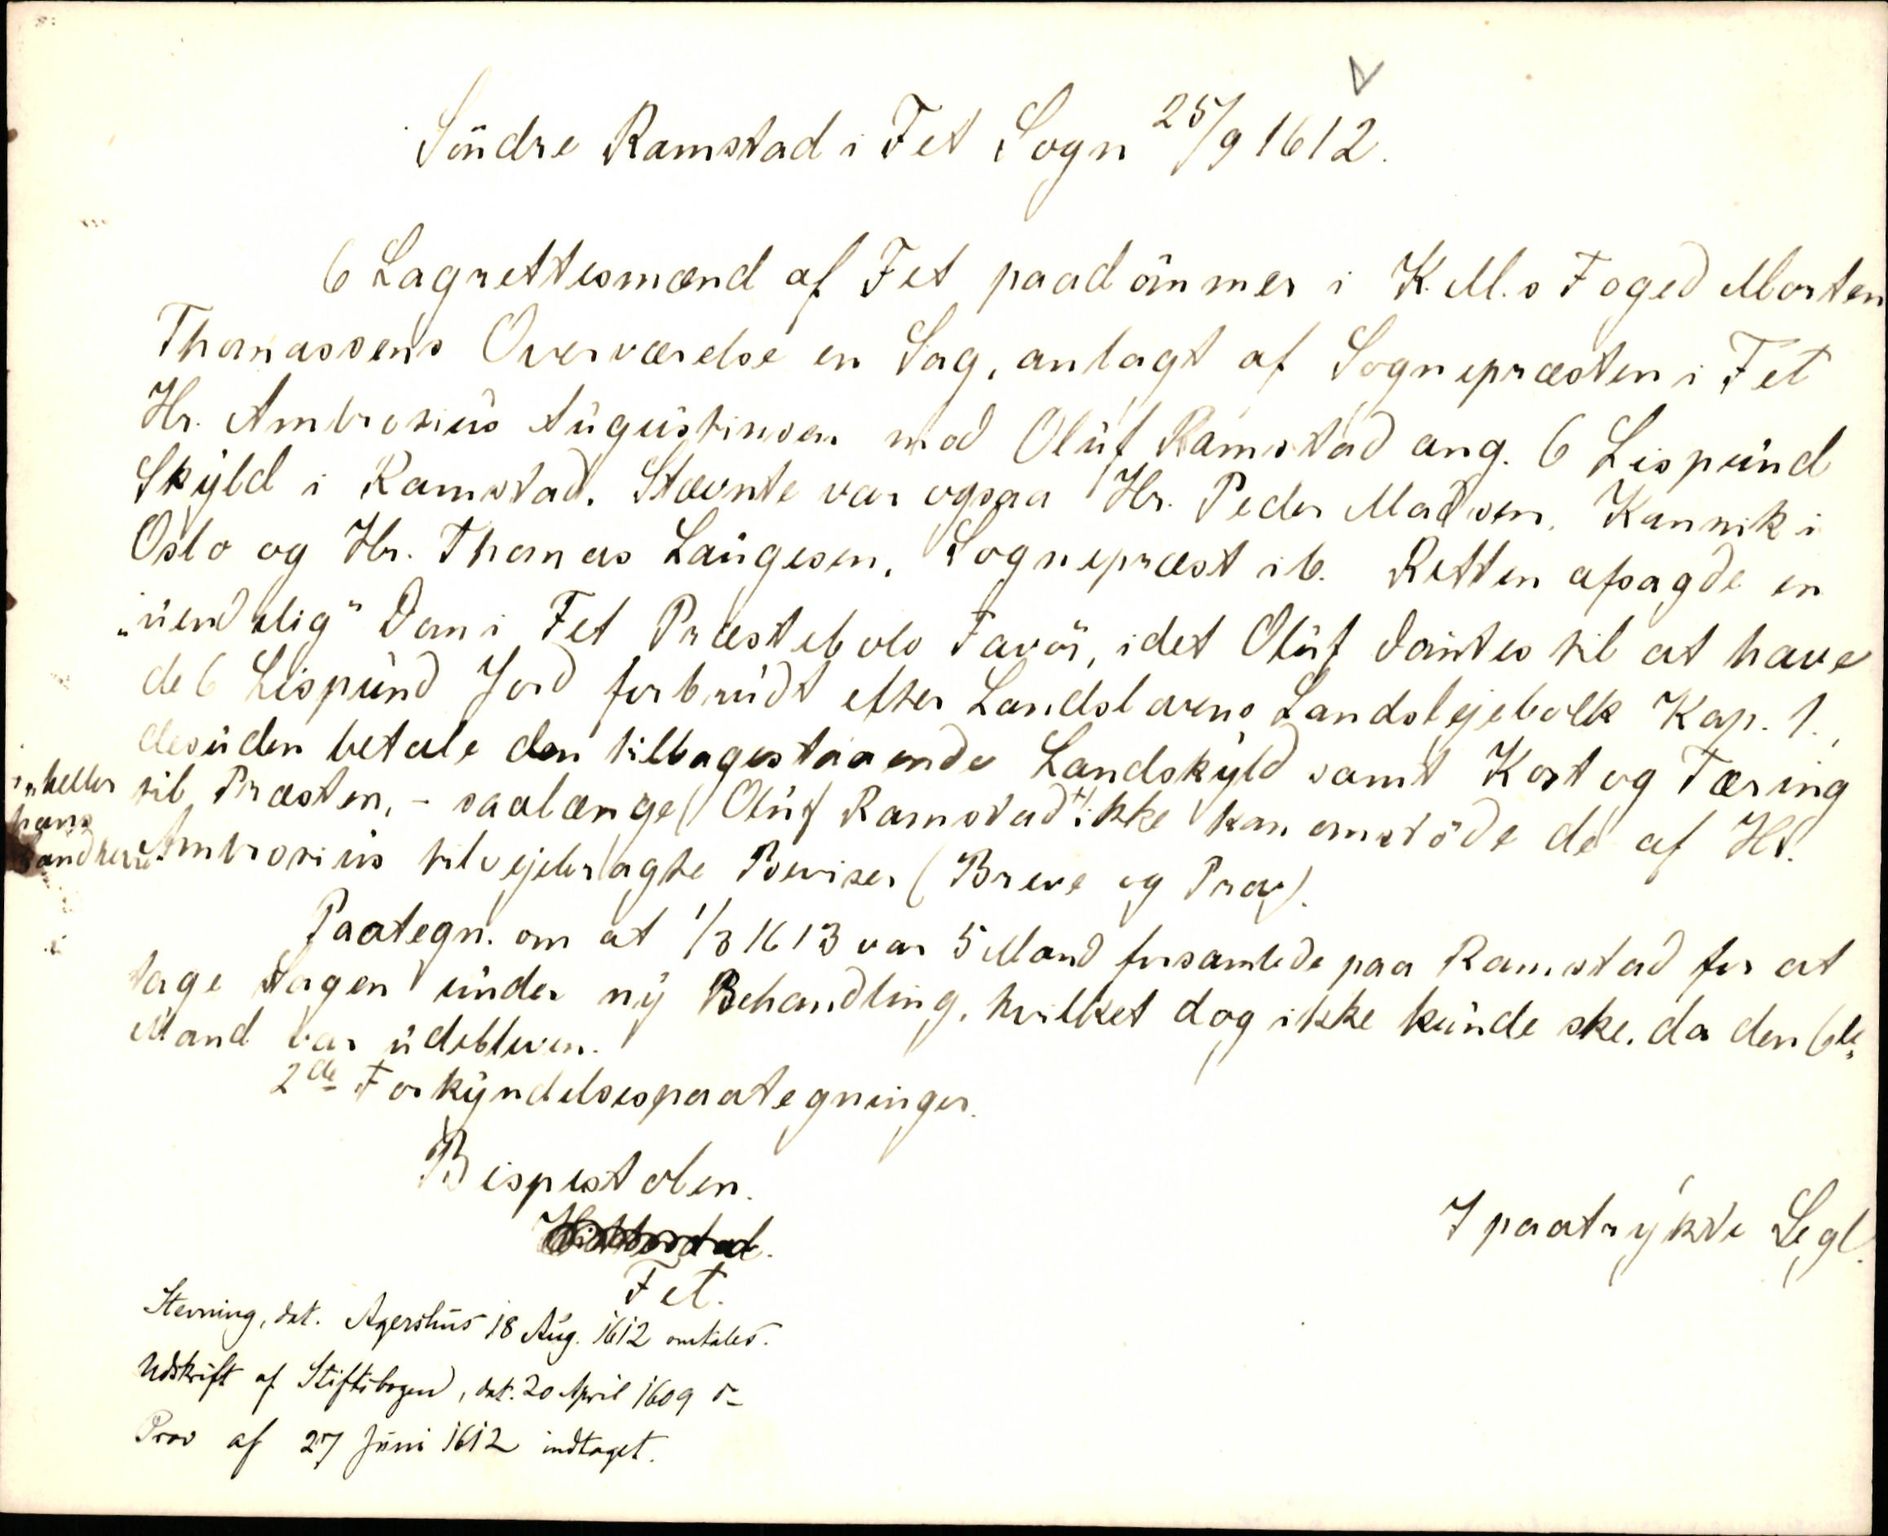 Söndre Ramstad i Fet Sogn 25/9 1612.
6 Lagrettesmænd af Fet paadömmer i K.M.s Foged Morten
Thomassens Overværelse en Sag, anlagt af Sognepræsten i Fet
Hr. Ambrosius Augustinsen mod Oluf Ramstad ang. 6 Lispund
Skyld i Ramstad. Stævnte var ogsaa Hr. Peder Madsen, Kannik i
Oslo og Hr. Thomas Laugesen, Sognepræst ib. Retten afsagde en
"uendelig" Dom i Fet Præstebols Favör, idet Oluf dömtes til at have
de 6 Lispund Jord forbrudt efter Landslovens Landslejebolk Kap. 1.,
desuden betale den tilbagestaaende Landskyld samt Kost og Tæring
til Præsten, - saalænge Oluf Ramstad ikke kan omstöde de af Hr.
Ambrosius tilvejebragte Beviser (Breve og Prov).
heller
hans
Paategn. om at 1/3 1613 var 5 Mænd forsamlede paa Ramstad for at
tage Sagen under ny Behandling, hvilket dog ikke kunde ske, da den 6te
Mand var udebleven.
2de Forkyndelsespaategninger.
Bispestolen.
Fet.
I paatrykte Segl.
Stevning, dat. Agershus 18 Aug. 1612 omtales.
Udskrift af Stiftsbogen, dat. 20 April 1609
Prov af 27 Juni 1612 indtaget.